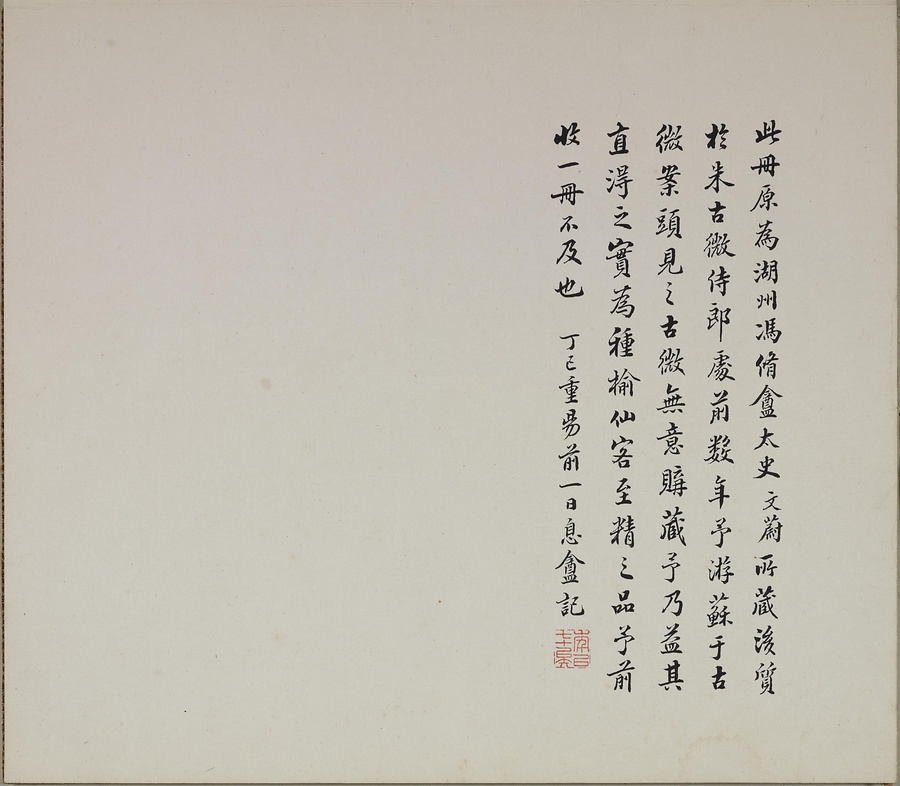 此冊原為湖州馮脩盦太史文蔚所蔵後質
於朱古微侍郎處前数年予游蘇于古
微案頭見之古微無意購藏予乃益其
直淂之實為種榆仙客至精之品予前
收一冊不及也　丁巳重昜前一日息盦記